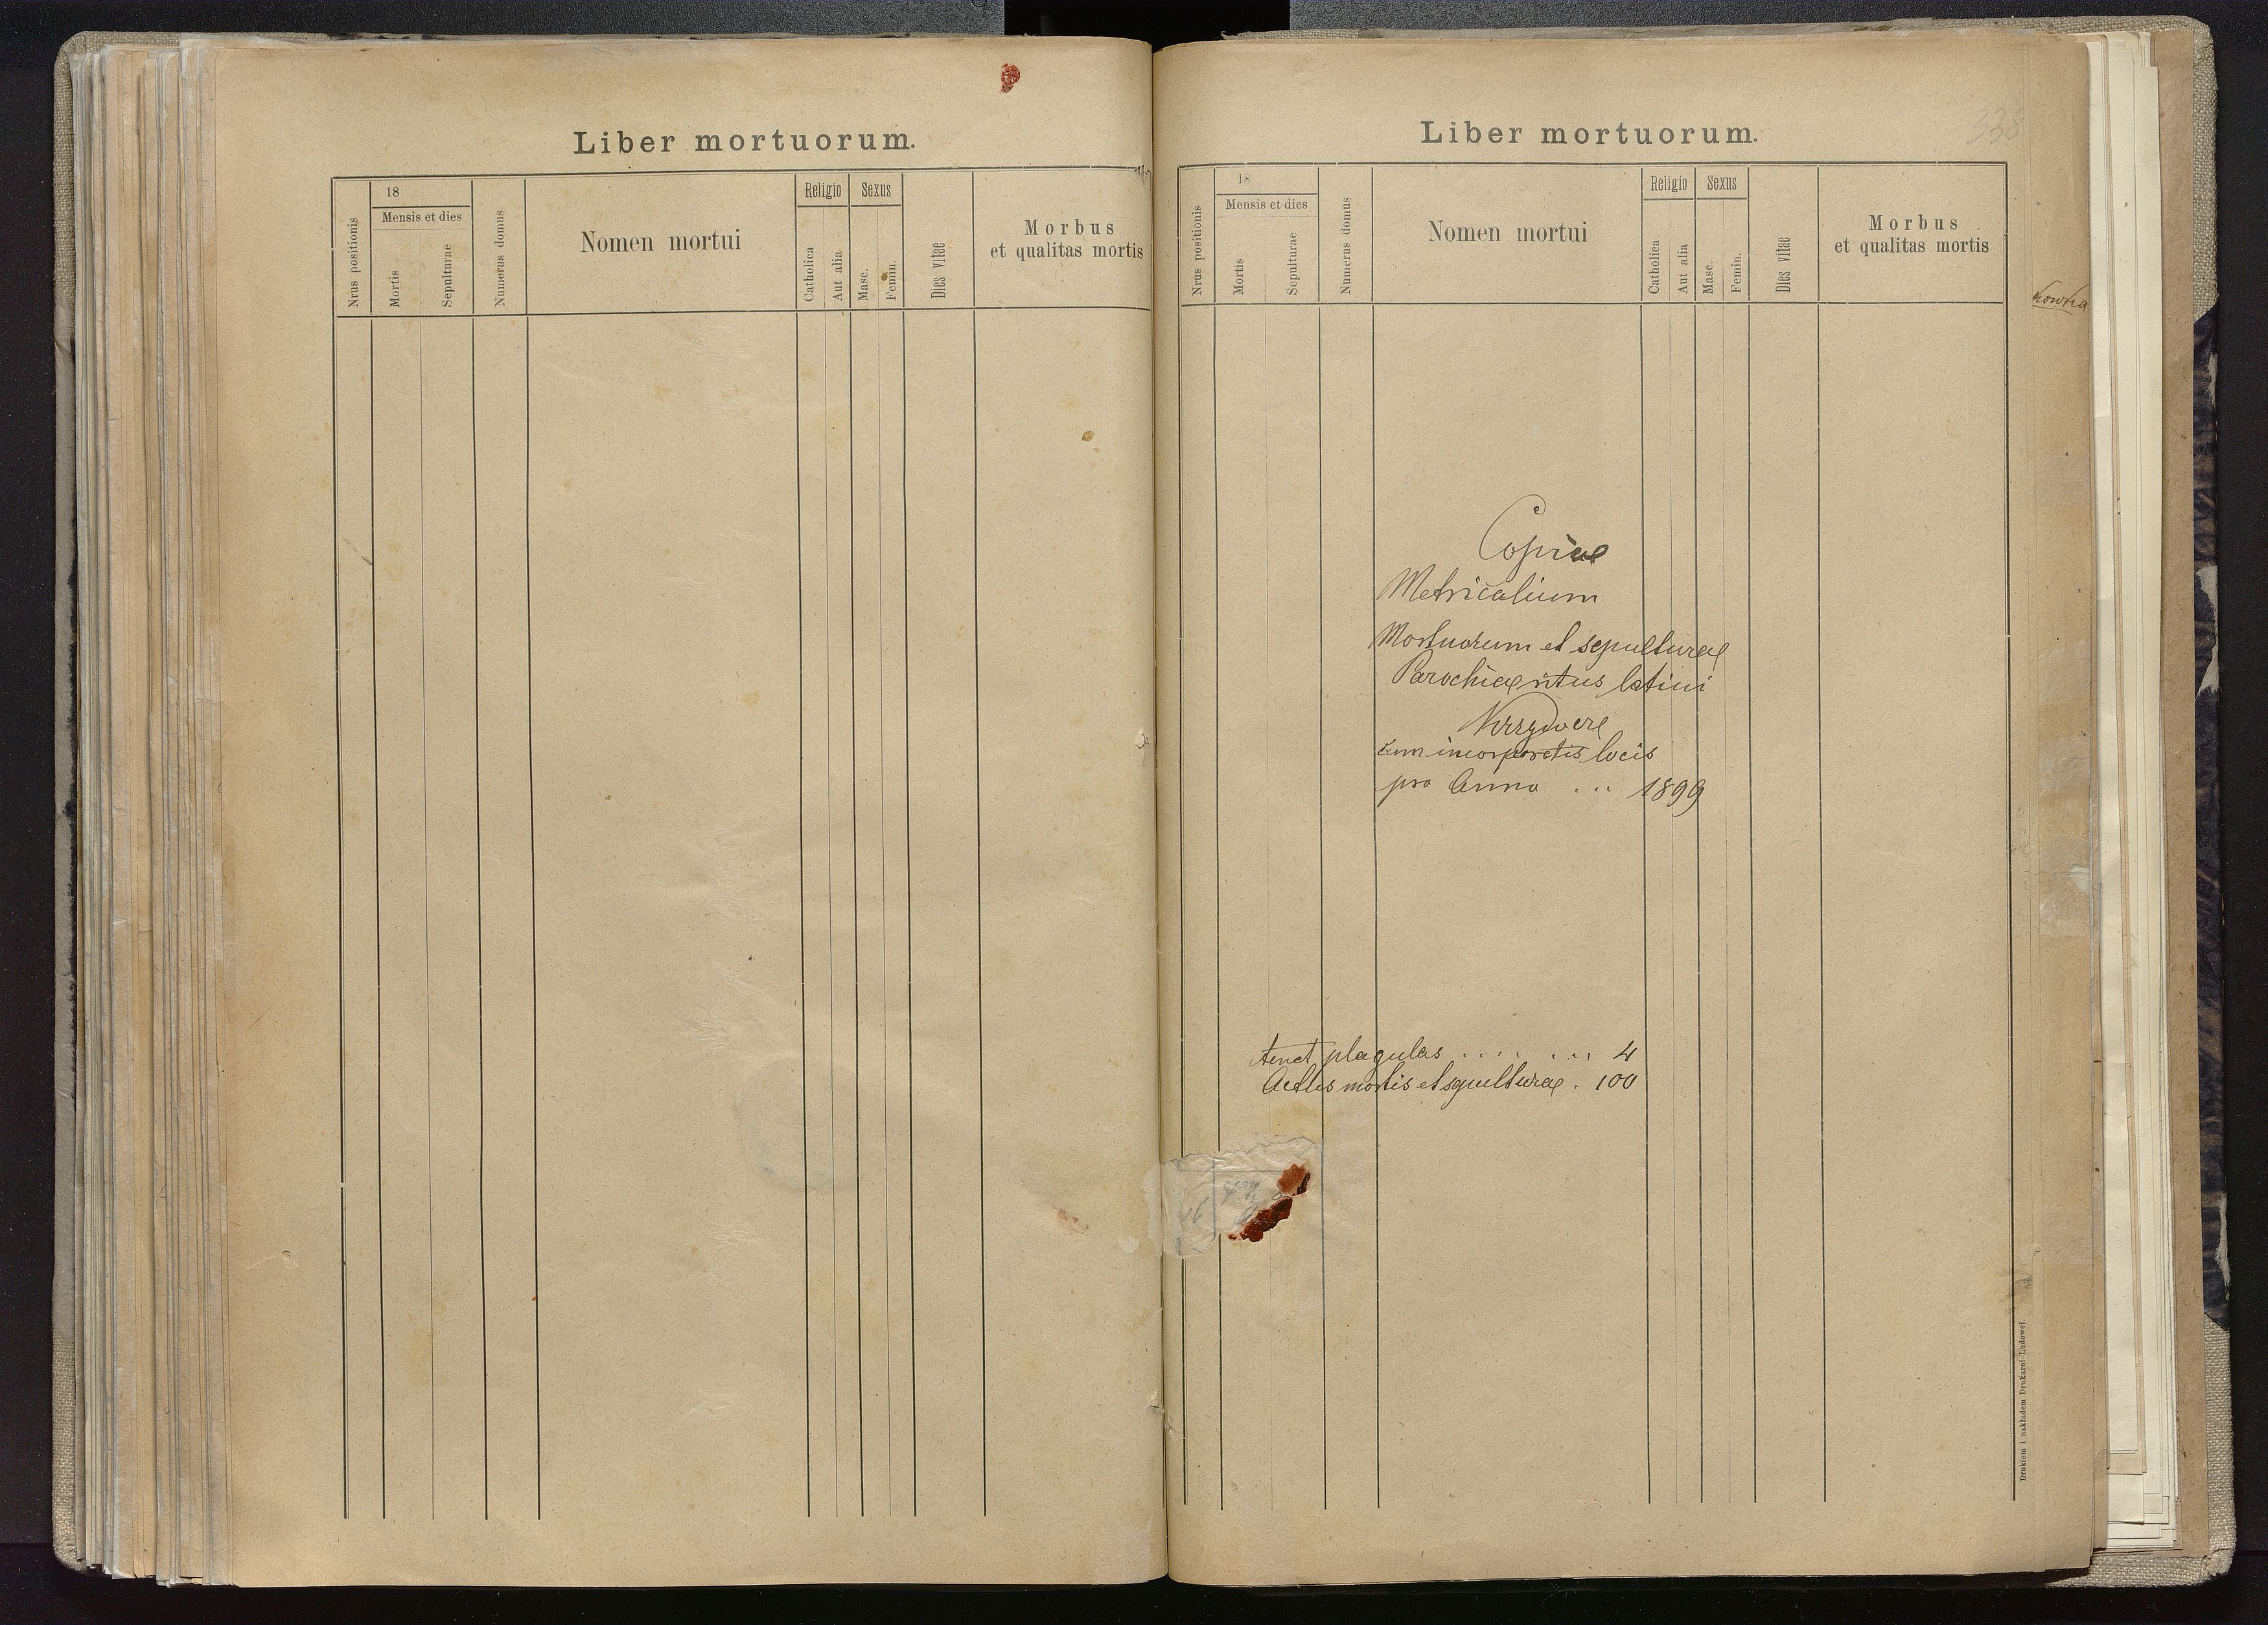 Liber mortuorum.
Nrus positionis
18
Mensis et dies
Mortis
Sepulturae
Numerus domus
Nomen mortui
Religio
Catholica
Aut alia
Sexus
Masc.
Femin.
Dies vitae
Morbus
et qualitas mortis
Liber mortuorum.
338
Nrus positionis
18
Mensis et dies
Mortis
Sepulturae
Numerus domus
Nomen mortui
Religio
Catholica
Aut alia
Sexus
Masc.
Femin.
Dies vitae
Morbus
et qualitas mortis
Copiae
Metricalium
Mortuorum et sepulturae
Parochiae ritus latini
cum incorporatis locis
pro Anno ... 1899
tenet plagulas ....... 4
Actus mortis et sepulturae . 100
Drukiem i nakładem Drukarni Ludowej.